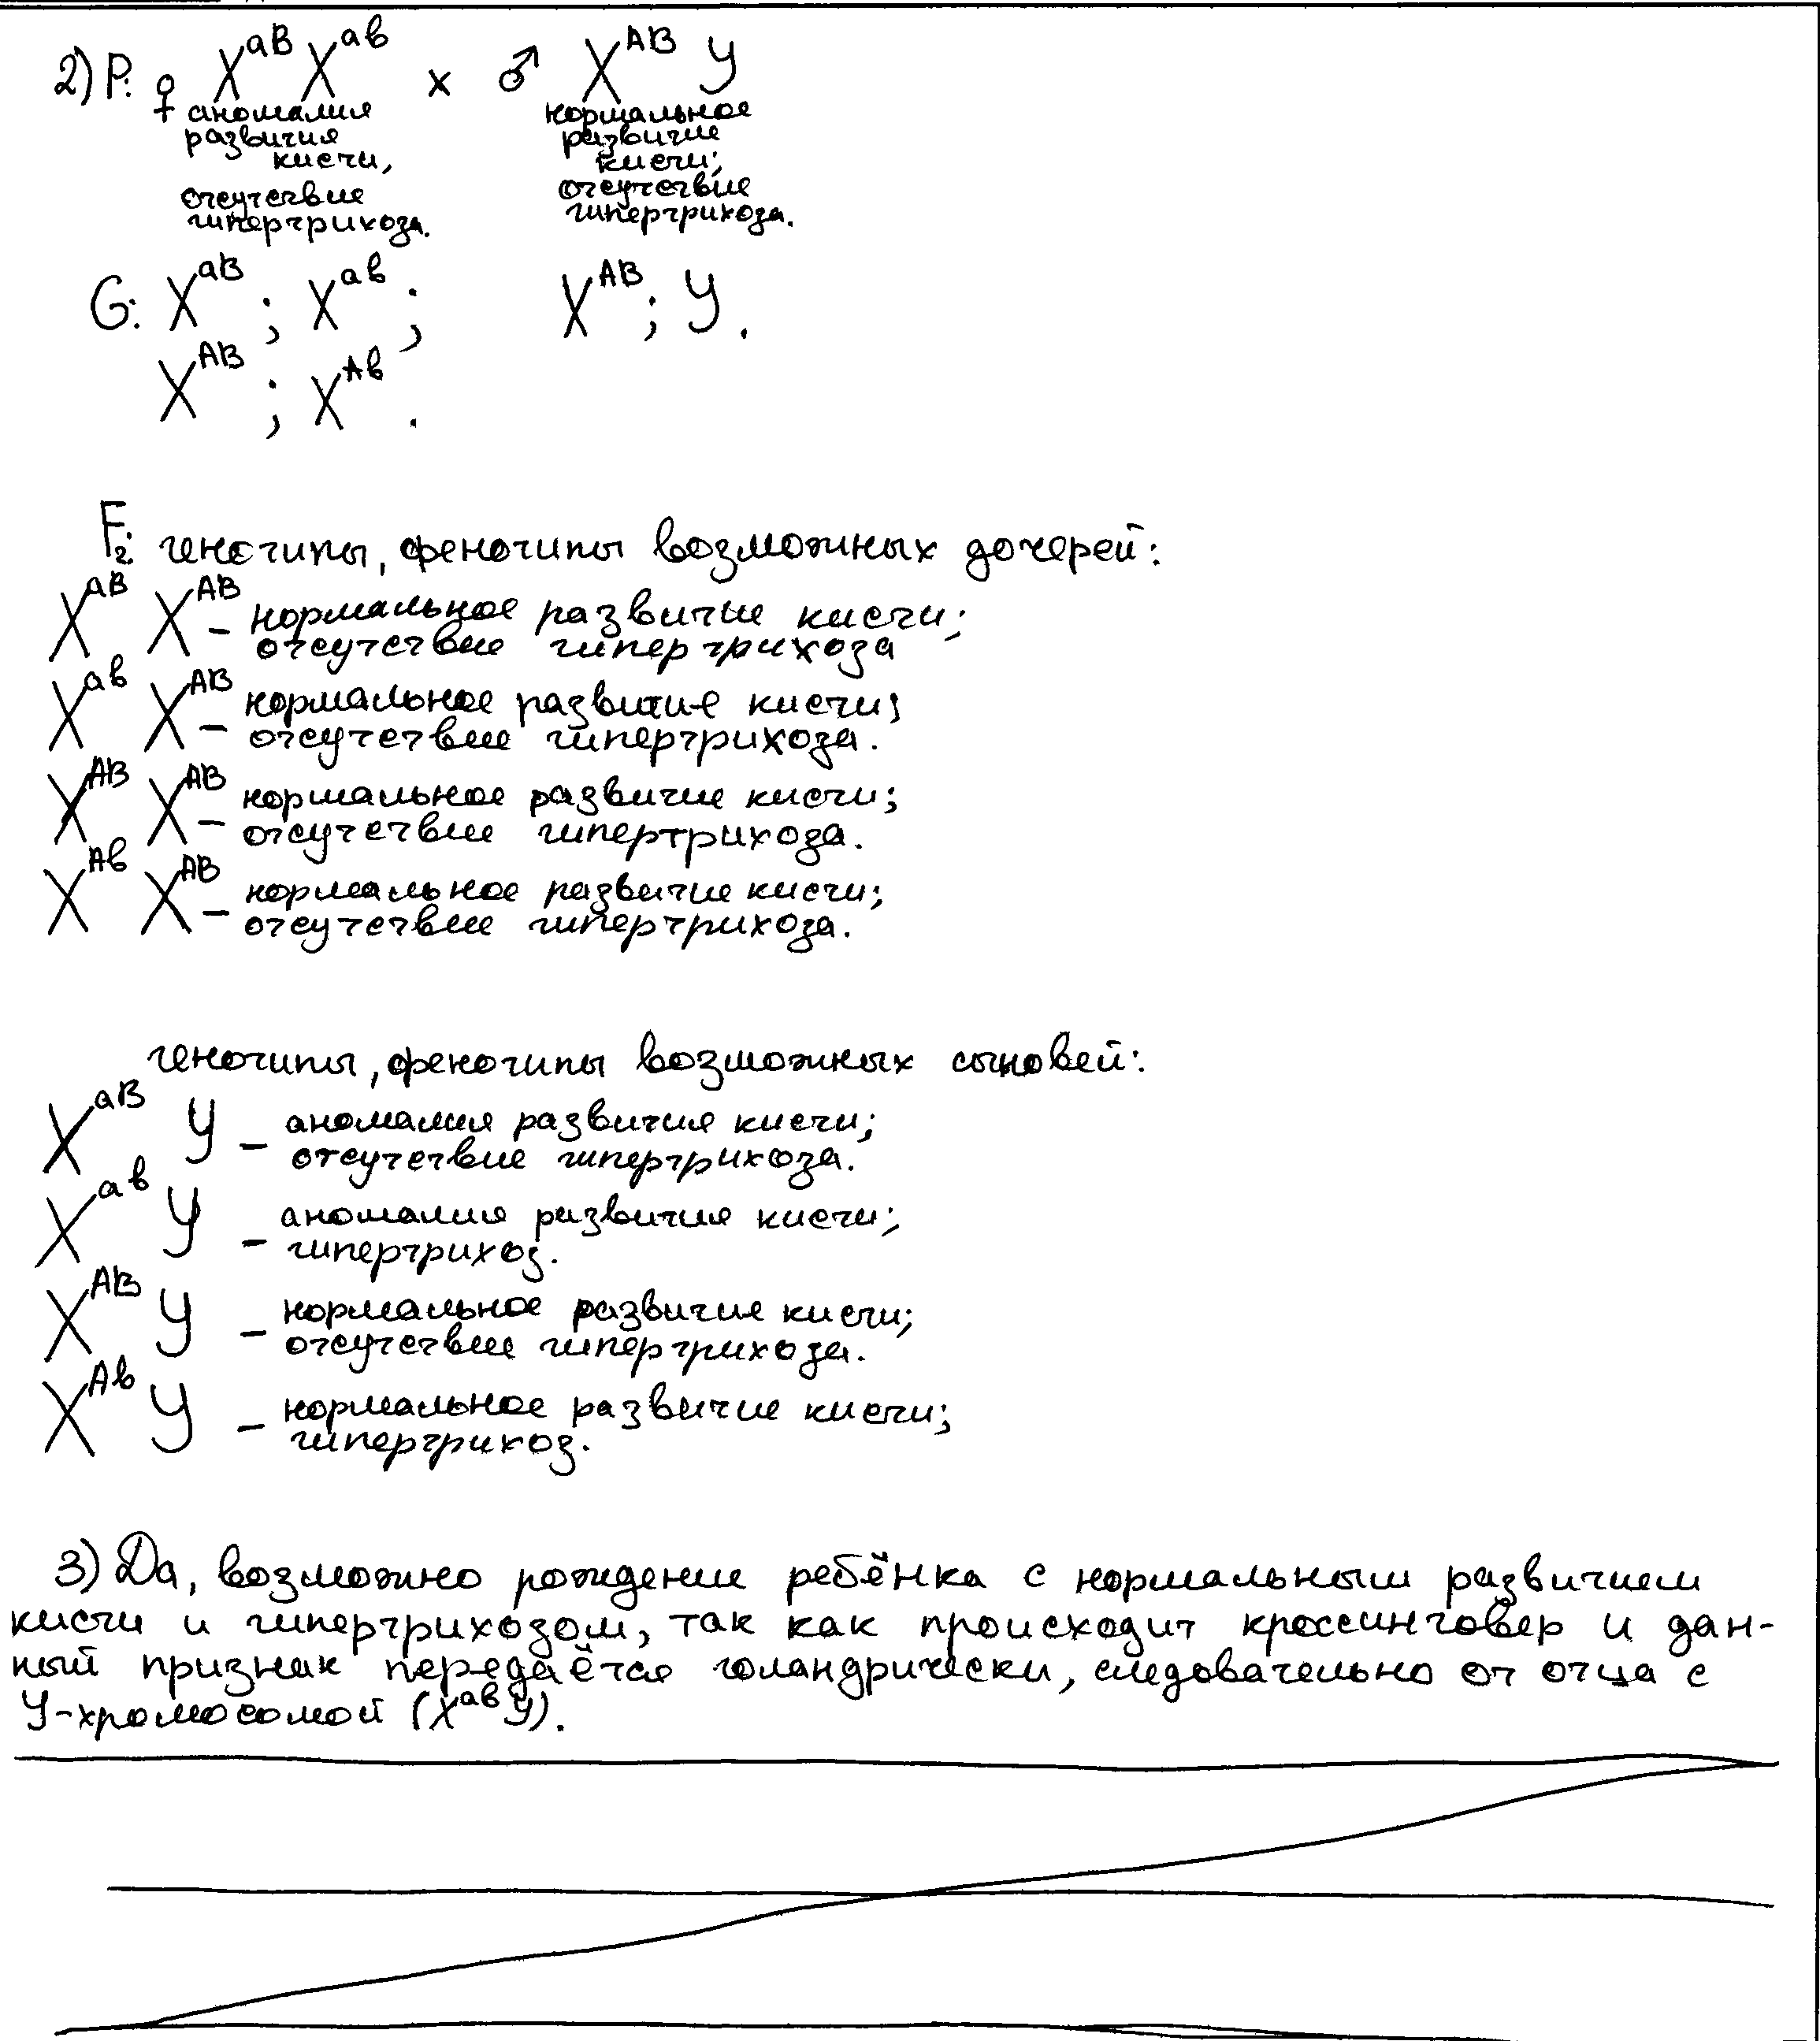 2) P: ♀ X^aB X^ab × ♂ X^AB У
аномалия нормальное
развития развитие
кисти, кисти;
отсутствие отсутствие
гипертрихоза. гипертрихоза.
G: X^aB ; X^ab ; X^AB ; У .
X^AB ; X^Ab .
F₂: генотипы, фенотипы возможных дочерей:
X^aB X^AB – нормальное развитие кисти;
отсутствие гипертрихоза
X^ab X^AB – нормальное развитие кисти;
отсутствие гипертрихоза.
X^AB X^AB – нормальное развитие кисти;
отсутствие гипертрихоза.
X^Ab X^AB – нормальное развитие кисти;
отсутствие гипертрихоза.
генотипы, фенотипы возможных сыновей:
X^aB У – аномалия развития кисти;
отсутствие гипертрихоза.
X^ab У – аномалия развития кисти;
гипертрихоз.
X^AB У – нормальное развитие кисти;
отсутствие гипертрихоза.
X^Ab У – нормальное развитие кисти;
гипертрихоз.
3) Да, возможно рождение ребёнка с нормальным развитием
кисти и гипертрихозом, так как происходит кроссинговер и дан-
ный признак передаётся голандрически, следовательно от отца с
У-хромосомой (X^ab У).